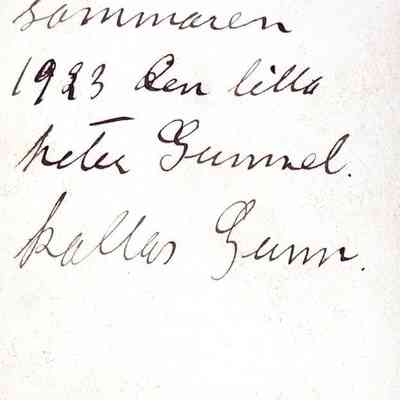 sommaren
1923 den lilla
heter Gunnel.
kallas Gunn.